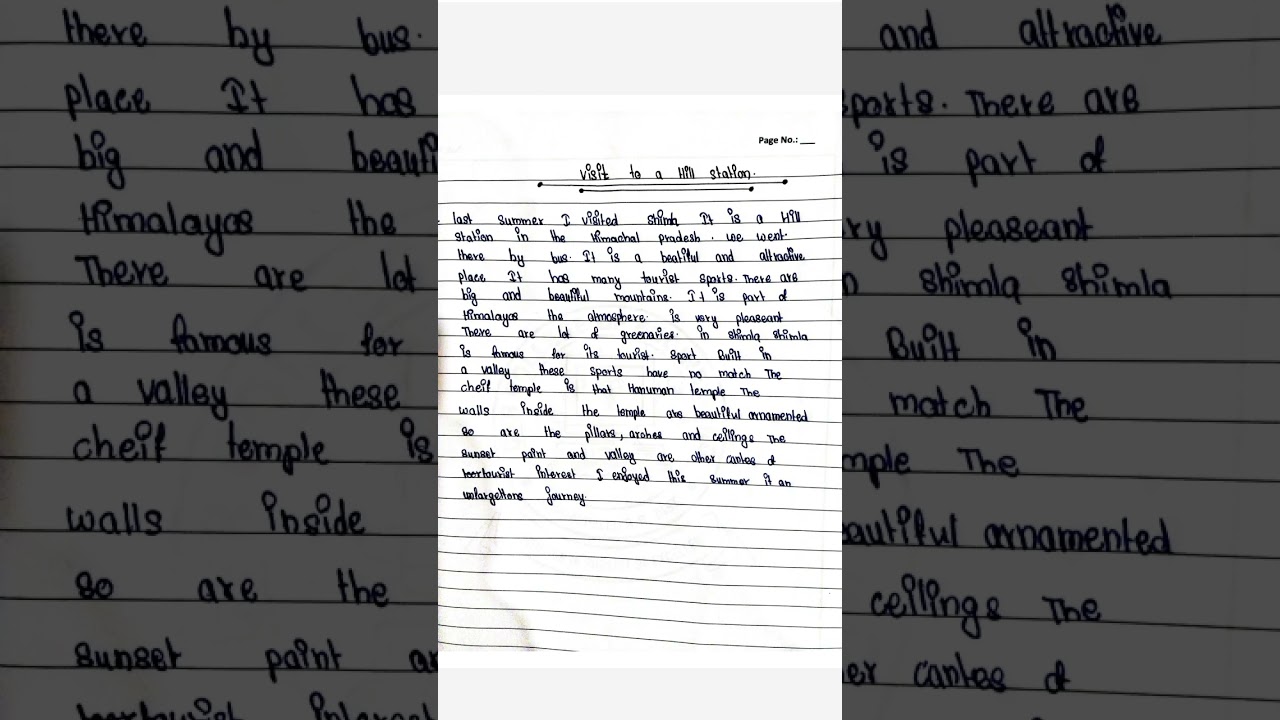 Page No.: ___
Visit to a Hill station.
last summer I visited shimla It is a Hill
station in the Himachal pradesh. we went.
there by bus. It is a beatiful and attractive
place It has many tourist sports. There are
big and beautiful mountains. It is part of
Himalayas the atmosphere. is very pleaseant
There are lot of greenaries. in shimla shimla
is famous for its tourist. sport Built in
a valley these sports have no match The
cheif temple is that Hanuman temple The
walls inside the temple are beautiful arnamented
so are the pillars, arches and ceilings The
sunset paint and valley are other cantes of
tourist interest I enjoyed this summer it an
journey.